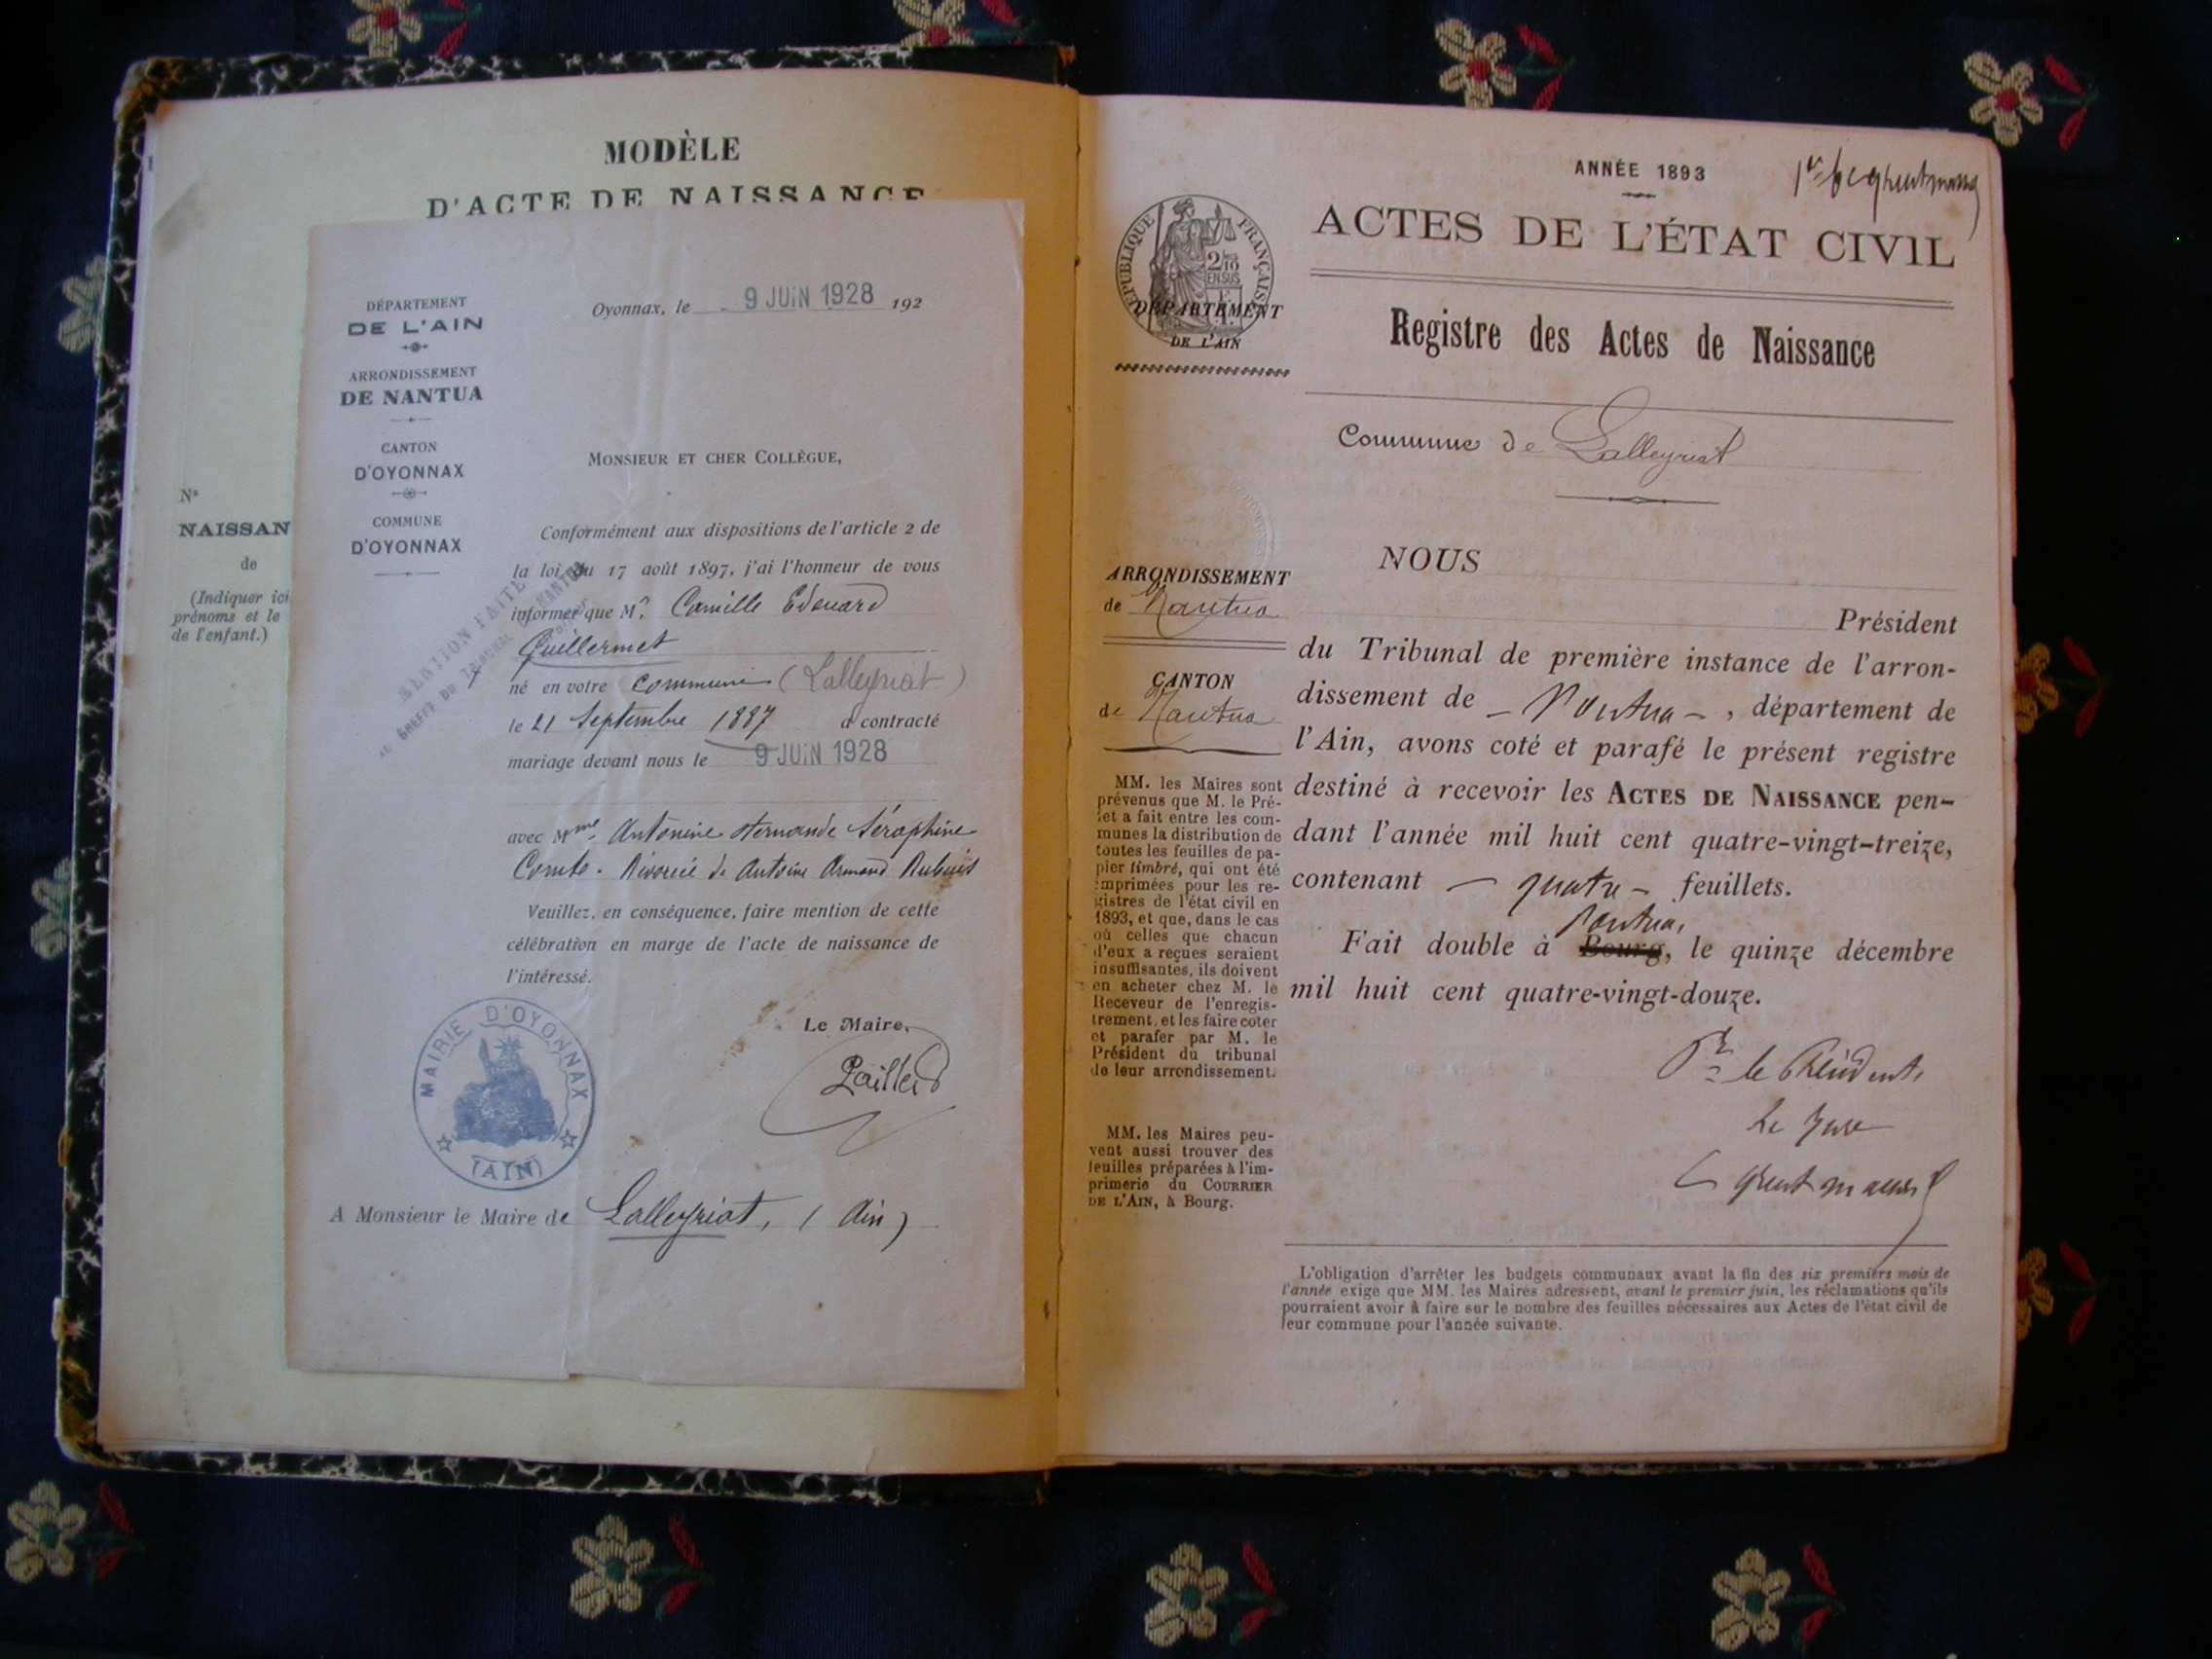 MODÈLE
D'ACTE DE NAISSANCE
Nº
NAISSAN
de
(Indiquer ici
prénoms et le
de l'enfant.)
DÉPARTEMENT
DE L'AIN
ARRONDISSEMENT
DE NANTUA
CANTON
D'OYONNAX
COMMUNE
D'OYONNAX
Oyonnax, le 9 JUIN 1928 192
MONSIEUR ET CHER COLLÈGUE,
Conformément aux dispositions de l'article 2 de
la loi du 17 août 1897, j'ai l'honneur de vous
informer que Mr. Camille Edouard
Guillermet
né en votre commune (Lalleyriat)
le 21 Septembre 1887 a contracté
mariage devant nous le 9 JUIN 1928
avec Mme Antonine Séraphine
Comte. Divorcée de Antoine Armand Dubuis
Veuillez, en conséquence, faire mention de cette
célébration en marge de l'acte de naissance de
l'intéressé.
MENTION FAITE
AU GREFFE DU TRIBUNAL DE NANTUA
Le Maire,
MAIRIE D'OYONNAX
(AIN)
A Monsieur le Maire de Lalleyriat, (Ain)
ANNÉE 1893
ACTES DE L'ÉTAT CIVIL
RÉPUBLIQUE FRANÇAISE
2/10
EN SUS
DÉPARTEMENT
DE L'AIN
Registre des Actes de Naissance
Commune de Lalleyriat
ARRONDISSEMENT
de Nantua
CANTON
de Nantua
MM. les Maires sont
prévenus que M. le Pré-
fet a fait entre les com-
munes la distribution de
toutes les feuilles de pa-
pier timbré, qui ont été
imprimées pour les re-
gistres de l'état civil en
1893, et que, dans le cas
où celles que chacun
d'eux a reçues seraient
insuffisantes, ils doivent
en acheter chez M. le
Receveur de l'enregis-
trement, et les faire coter
et parafer par M. le
Président du tribunal
de leur arrondissement.
MM. les Maires peu-
vent aussi trouver des
feuilles préparées à l'im-
primerie du COURRIER
DE L'AIN, à Bourg.
NOUS
Président
du Tribunal de première instance de l'arron-
dissement de - Nantua - , département de
l'Ain, avons coté et parafé le présent registre
destiné à recevoir les ACTES DE NAISSANCE pen-
dant l'année mil huit cent quatre-vingt-treize,
contenant - quatre - feuillets.
Nantua,
Fait double à Bourg, le quinze décembre
mil huit cent quatre-vingt-douze.
Pr le Président,
Le Juge
L'obligation d'arrêter les budgets communaux avant la fin des six premiers mois de
l'année exige que MM. les Maires adressent, avant le premier juin, les réclamations qu'ils
pourraient avoir à faire sur le nombre des feuilles nécessaires aux Actes de l'état civil de
leur commune pour l'année suivante.